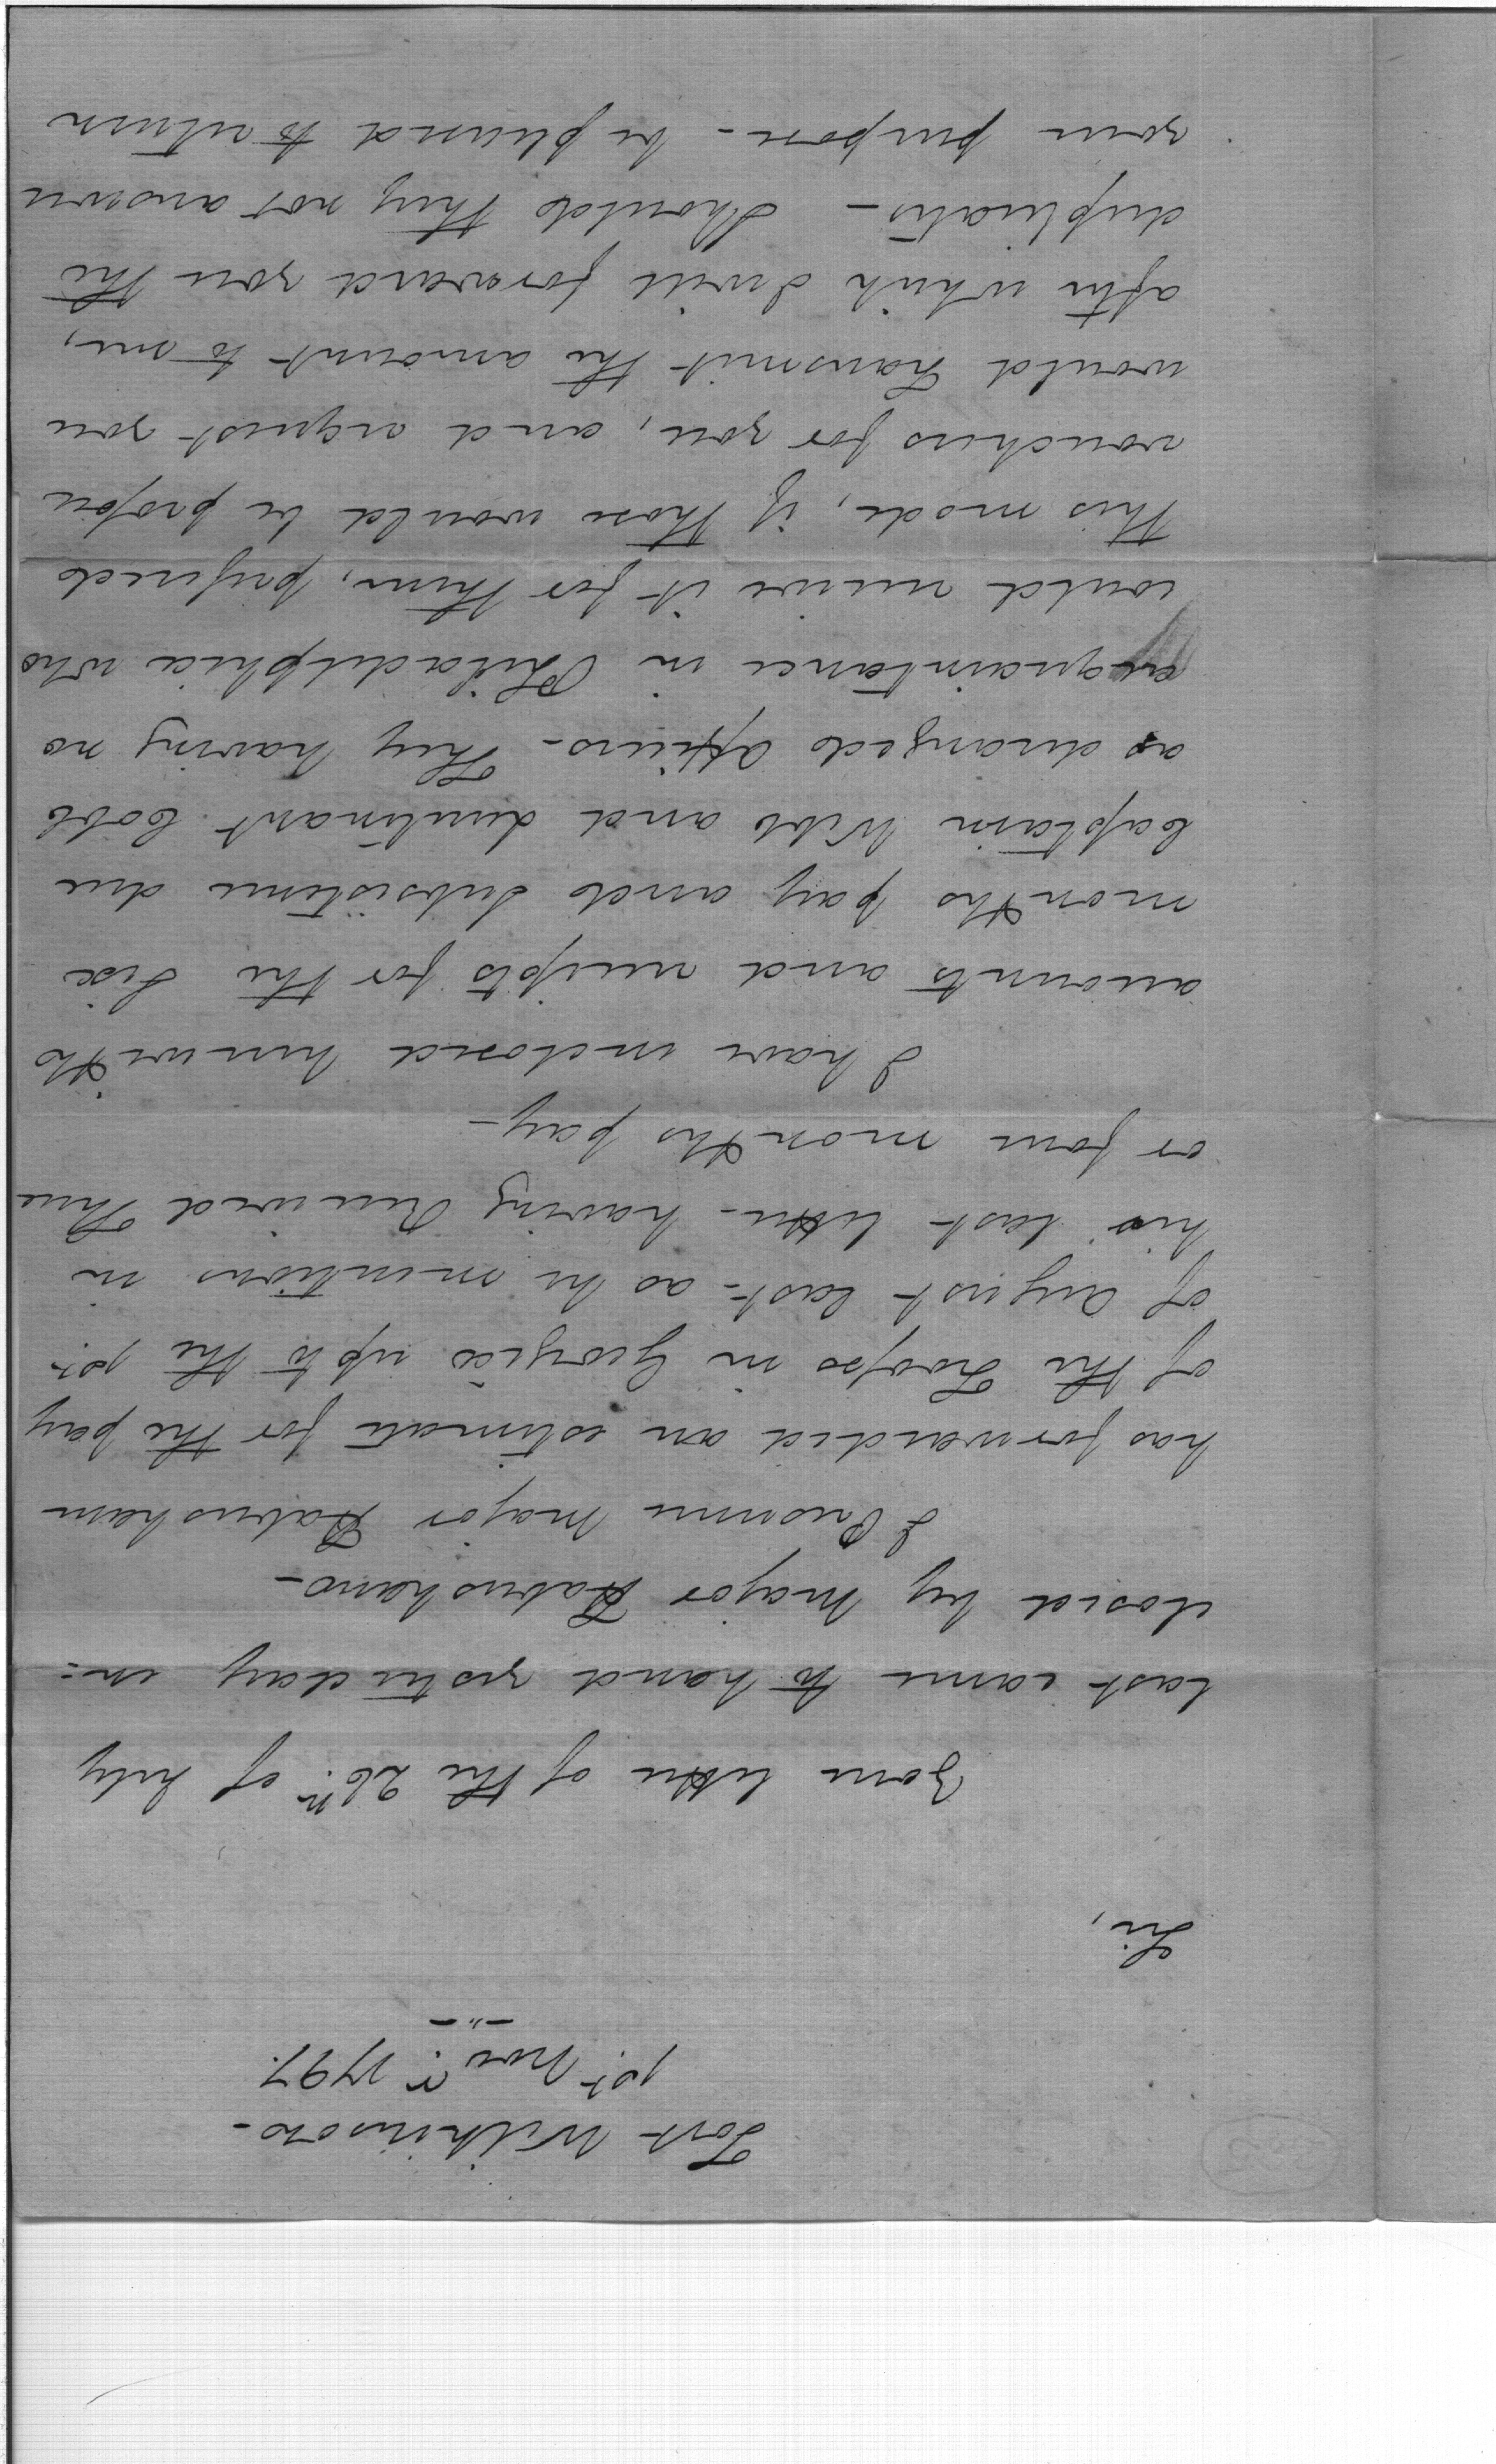 Fort Wilkinson-
1st. Nov.r 1797.
-"-
Sir,
Your letter of the 26th. of July
last came to hand yesterday en=
closed by Major Habersham-
I Presume Major Habersham
has forwarded an estimate for the pay
of the Troops in Georgia up to the 1st.
of August last- as he mentions in
his last letter- having Received Three
or four months pay-
I have inclosed herewith
accounts and receipts for the Six
months pay and Subsistence due
Captain Webb and Lieutenant Cobb
as deranged officers- They having no
acquaintance in Philadelphia who
could receive it for them, prefered
This mode, if Those would be proper
vouchers for you, and request you
would Transmit the amount to me,
after which I will forward you the
duplicates- Should They not answer
your purpose- be pleased to return